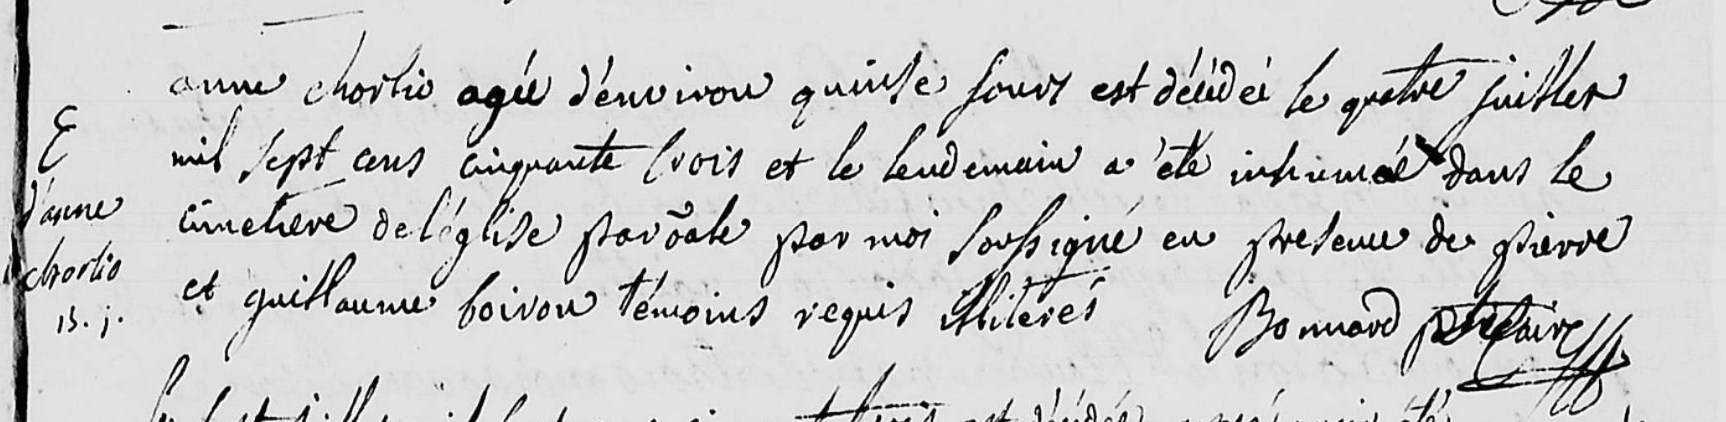 anne chorlio agée d'environ quinse jours est décédée le quatre juillet
E
mil sept cens cinquante trois et le lendemain a été inhumée dans le
d'anne
cimetiere de l'église paroâle par moi soussigné en presence de pierre
chorlio
et guillaume boiron témoins requis illiterés Bonnard
15. j.
est décédée